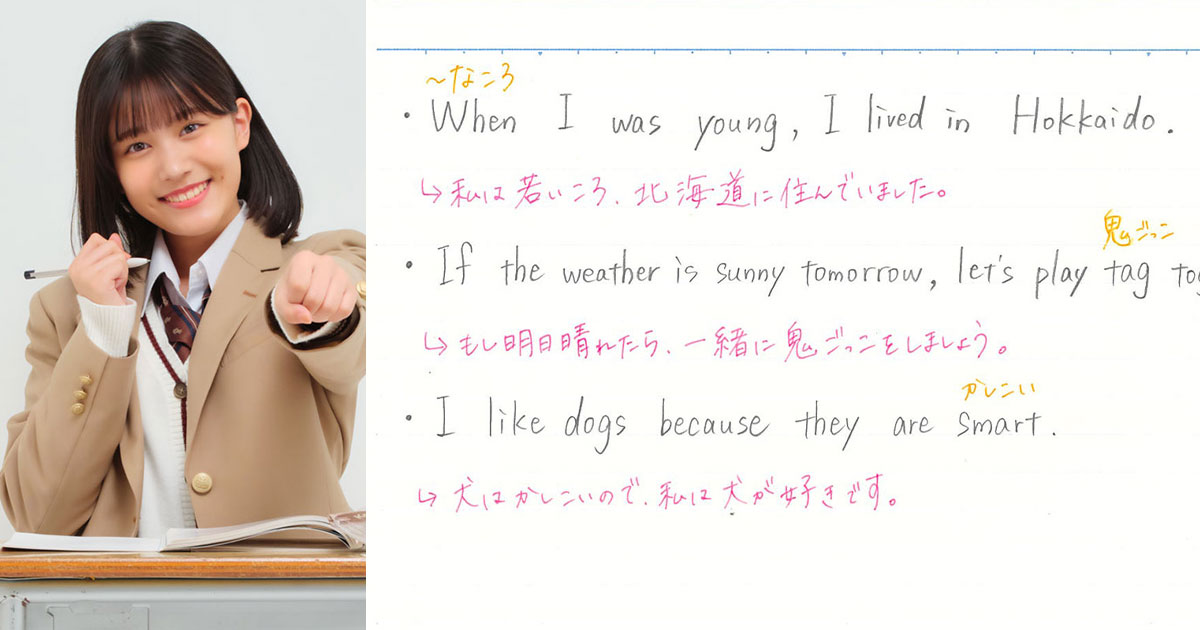 ～なころ
・When I was young, I lived in Hokkaido.
↳ 私は若いころ、北海道に住んでいました。
鬼ごっこ
・If the weather is sunny tomorrow, let's play tag
↳ もし明日晴れたら、一緒に鬼ごっこをしましょう。
かしこい
・I like dogs because they are smart.
↳ 犬はかしこいので、私は犬が好きです。